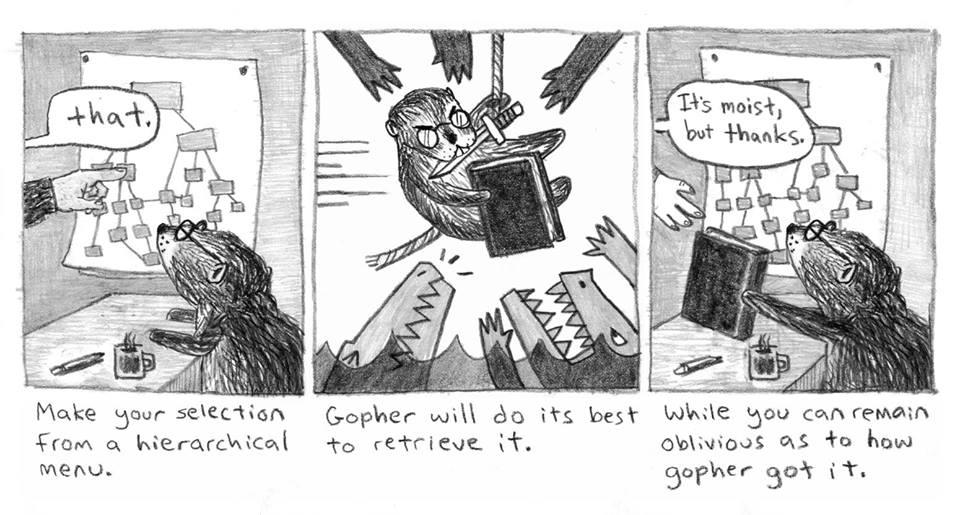 that.
Make your selection
from a hierarchical
menu.
Gopher will do its best
to retrieve it.
It's moist,
but thanks.
While you can remain
oblivious as to how
gopher got it.